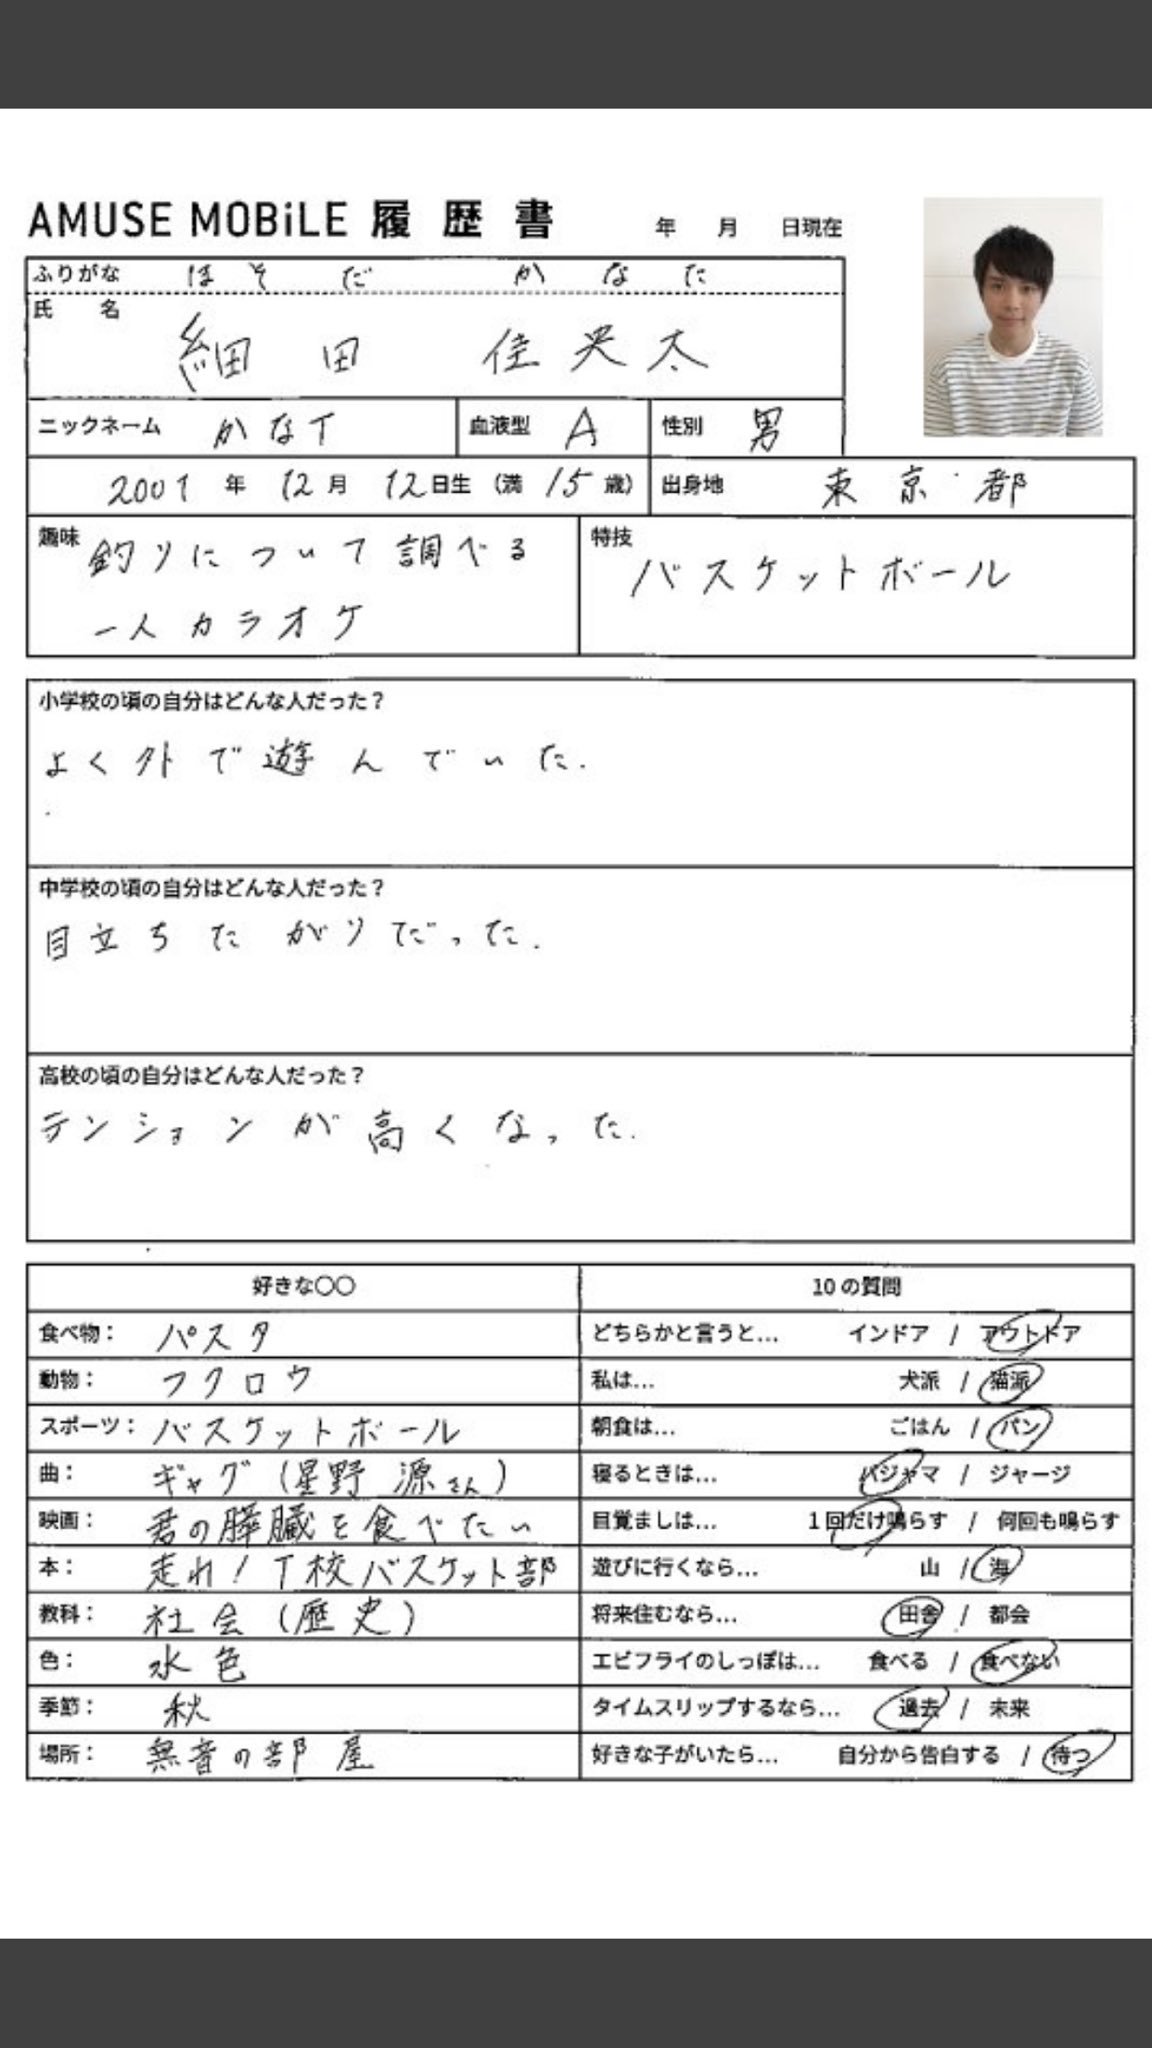 AMUSE MOBiLE 履歴書 年 月 日現在
ふりがな ほそだ かなた
氏 名 細田 佳央太
ニックネーム かなT 血液型 A 性別 男
2001年 12月 12日生 (満 15 歳) 出身地 東京都
趣味 釣りについて調べる
一人カラオケ
特技 バスケットボール
小学校の頃の自分はどんな人だった?
よく外で遊んでいた.
中学校の頃の自分はどんな人だった?
目立ちたがりだった.
高校の頃の自分はどんな人だった?
テンションが高くなった.
好きな〇〇
食べ物: パスタ
動物: フクロウ
スポーツ: バスケットボール
曲: ギャグ(星野 源さん)
映画: 君の膵臓を食べたい
本: 走れ!T校バスケット部
教科: 社会(歴史)
色: 水色
季節: 秋
場所: 無音の部屋
10の質問
どちらかと言うと... インドア / アウトドア
私は... 犬派 / 猫派
朝食は... ごはん / パン
寝るときは... パジャマ / ジャージ
目覚ましは... 1回だけ鳴らす / 何回も鳴らす
遊びに行くなら... 山 / 海
将来住むなら... 田舎 / 都会
エビフライのしっぽは... 食べる / 食べない
タイムスリップするなら... 過去 / 未来
好きな子がいたら... 自分から告白する / 待つ